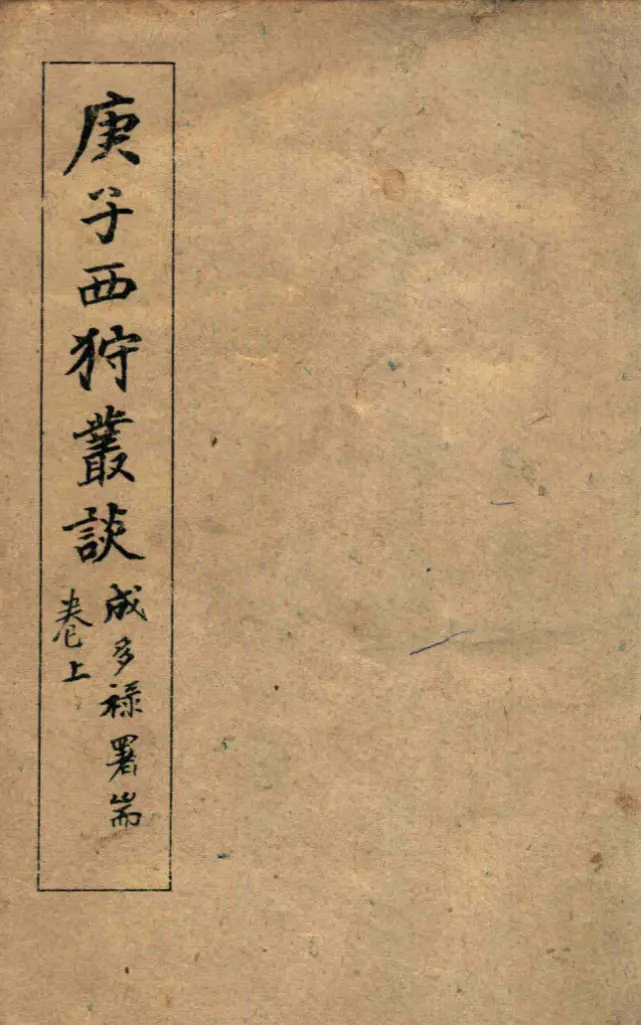 庚子西狩叢談
成多祿署耑
卷上